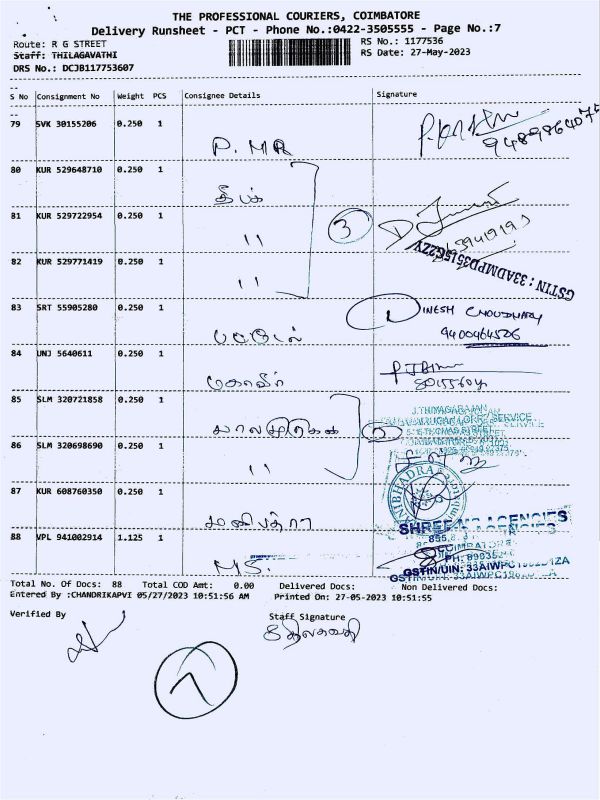 THE PROFESSIONAL COURIERS, COIMBATORE
Delivery Runsheet - PCT - Phone No.:0422-3505555 - Page No.:7
Route: R G STREET
RS No.: 1177536
Staff: THILAGAVATHI
RS Date: 27-May-2023
DRS No.: DCJB117753607
S No Consignment No Weight PCS Consignee Details Signature
79 SVK 30155206 0.250 1
P. MR
9489864075
80 KUR 529648710 0.250 1
தீபக்
81 KUR 529722954 0.250 1
"
3
82 KUR 529771419 0.250 1
"
GSTIN : 33ADMPD3515G2ZV
83 SRT 55905280 0.250 1
DINESH CHOUDHARY
9400464506
84 UNJ 5640611 0.250 1
மகாவீர்
85 SLM 320721858 0.250 1
J.THIYAGARAJAN
86 SLM 320698690 0.250 1
"
87 KUR 608760350 0.250 1
மனிபத்ரா
SHREE AGENCIES
88 VPL 941002914 1.125 1
M.S.
COIMBATORE
Total No. Of Docs: 88 Total COD Amt: 0.00 Delivered Docs: Non Delivered Docs:
Entered By :CHANDRIKAPVI 05/27/2023 10:51:56 AM Printed On: 27-05-2023 10:51:55
Verified By
Staff Signature
திலகவதி
7